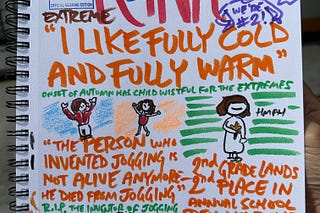 WE'RE #2!
EXTREME
"I LIKE FULLY COLD
AND FULLY WARM"
ONSET OF AUTUMN HAS CHILD WISTFUL FOR THE EXTREMES
HMPH
"THE PERSON WHO
INVENTED JOGGING IS
NOT ALIVE ANYMORE-
HE DIED FROM JOGGING"
R.I.P. THE INVENTOR OF JOGGING
2nd GRADE LANDS
2nd PLACE IN
ANNUAL SCHOOL